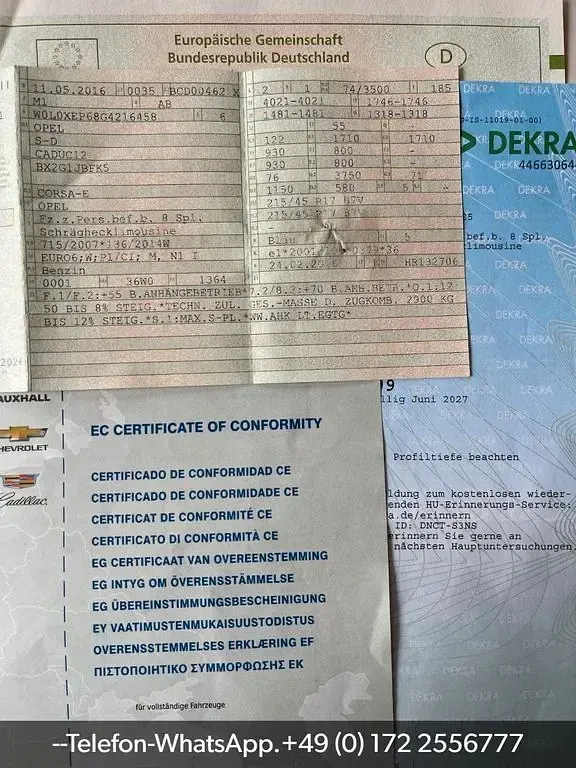 Europäische Gemeinschaft
Bundesrepublik Deutschland
D
11.05.2016 0035 BCD00462 X
M1 AB
W0L0XEP68G4216458 6
OPEL
S-D
CADUC12
BX2G1JBFK5
CORSA-E
OPEL
Fz.z.Pers.bef.b. 8 Spl.
Schräghecklimousine
715/2007*136/2014W
EURO6;W;PI/CI; M, N1 I
Benzin
0001 36W0 1364
2 1 74/3500 185
4021-4021 1746-1746
1481-1481 1318-1318
55 -
122 1710 1710
930 800 -
930 800 -
76 3750 71
1150 580 5 -
215/45 R17 87V
215/45 R17 87V
-
-
Blau 5
HR132706
F.1/F.2:+55 B.ANHÄNGEBETRIEB*7.2/8.2:+70 B.ANH.BETR.*O.1:12
50 BIS 8% STEIG.*TECHN. ZUL. GES.-MASSE D. ZUGKOMB. 2900 KG
BIS 12% STEIG.*S.1:MAX.S-PL.*WW.AHK LT.EGTG*
DEKRA
D-IS-11019-01-00)
DEKRA
44663064
35
bef.b. 8 Spl.
limousine
9
llig Juni 2027
Profiltiefe beachten
ldung zum kostenlosen wieder-
enden HU-Erinnerungs-Service:
a.de/erinnern
ID: DNCT-S3NS
erinnern Sie gerne an
nächsten Hauptuntersuchungen
VAUXHALL
CHEVROLET
Cadillac
EC CERTIFICATE OF CONFORMITY
CERTIFICADO DE CONFORMIDAD CE
CERTIFICADO DE CONFORMIDADE CE
CERTIFICAT DE CONFORMITÉ CE
CERTIFICATO DI CONFORMITÀ CE
EG CERTIFICAAT VAN OVEREENSTEMMING
EG INTYG OM ÖVERENSSTÄMMELSE
EG ÜBEREINSTIMMUNGSBESCHEINIGUNG
EY VAATIMUSTENMUKAISUUSTODISTUS
OVERENSSTEMMELSES ERKLÆRING EF
ΠΙΣΤΟΠΟΙΗΤΙΚΟ ΣΥΜΜΟΡΦΩΣΗΣ ΕΚ
für vollständige Fahrzeuge
--Telefon-WhatsApp.+49 (0) 172 2556777